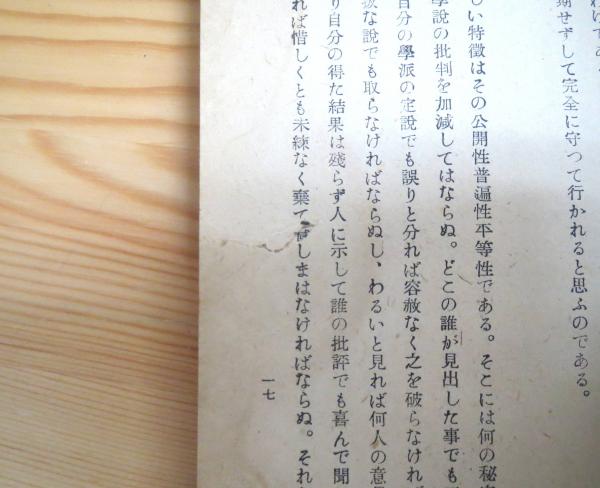 期せずして完全に守つて行かれると思ふのである。
しい特徴はその公開性普遍性平等性である。そこには何の秘
學說の批判を加減してはならぬ。どこの誰が見出した事でも
自分の學派の定說でも誤りと分れば容赦なく之を破らなければ
な說でも取らなければならぬし、わるいと見れば何人の意
り自分の得た結果は残らず人に示して誰の批評でも喜んで聞
れば惜しくとも未練なく棄て しまはなければならぬ。それ
一七